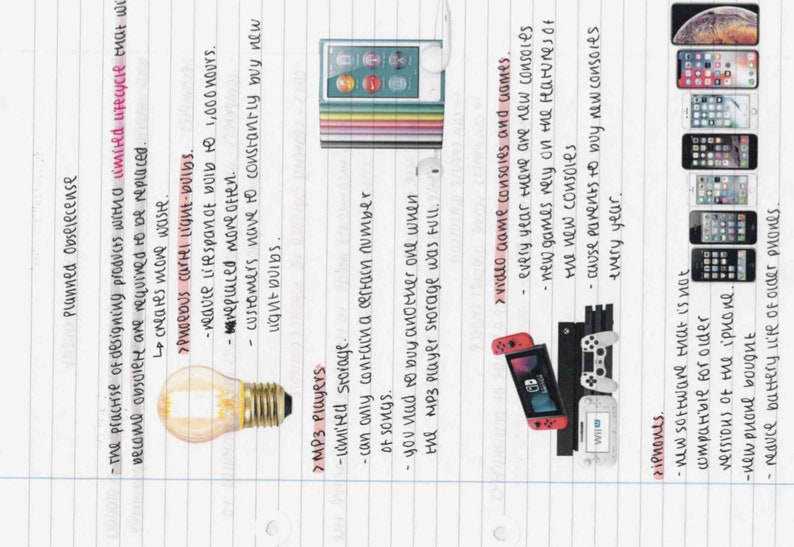 planned obselecense
- the practise of designing products with a limited lifecycle that
become obsolent are required to be replaced.
↳ creates more waste.
> Phoebus cartel light-bulbs.
- reduce lifespan of bulb to 1,000 hours.
- replaced more often.
- customers have to constantly buy new
light bulbs.
> MP3 players
- limited storage.
- can only contain a certain number
of songs.
- you had to buy another one when
the MP3 player storage was full.
> video game consoles and games.
- every year there are new consoles
- new games rely on the features of
the new consoles
- cause parents to buy new consoles
every year.
WiiU
> iphones.
- new software that is not
compatible for older
versions of the iphone.
- new phone bought
- reduce battery life of older phones.